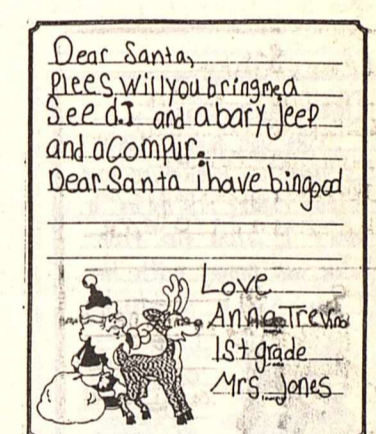 Dear Santa,
Plees will you bring me a
See d.I and a bary jeep
and a Compur.
Dear Santa i have bin good
Love
Anna Trevino
1st grade
Mrs. Jones